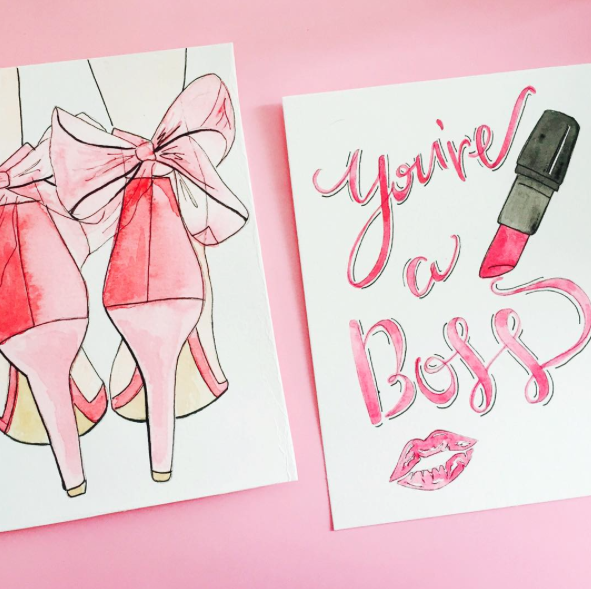 You're
a
Boss